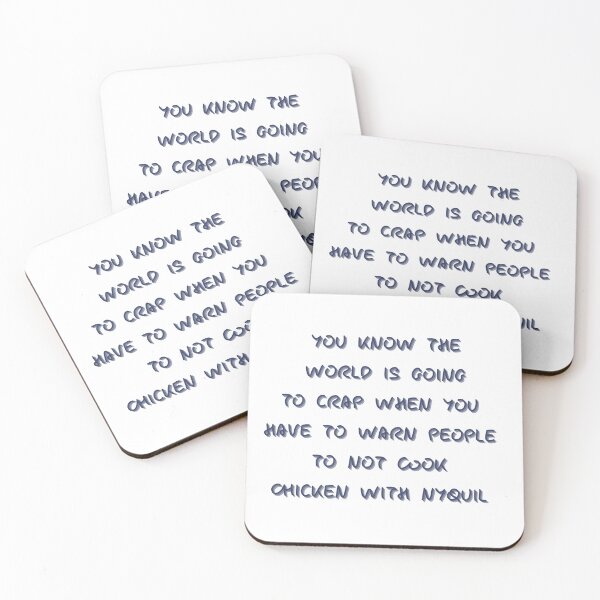 YOU KNOW THE
WORLD IS GOING
TO CRAP WHEN YOU
HAVE
YOU KNOW THE
WORLD IS GOING
TO CRAP WHEN YOU
HAVE TO WARN PEOPLE
TO NOT COOK
YOU KNOW THE
WORLD IS GOING
TO CRAP WHEN YOU
HAVE TO WARN PEOPLE
TO NOT
CHICKEN WITH
YOU KNOW THE
WORLD IS GOING
TO CRAP WHEN YOU
HAVE TO WARN PEOPLE
TO NOT COOK
CHICKEN WITH NYQUIL